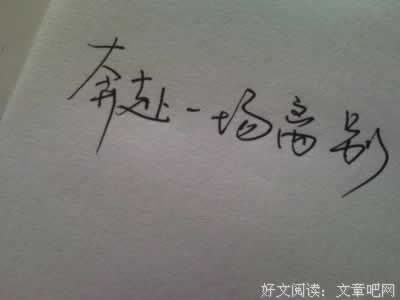 奔赴一场离别
好文阅读：文章吧网